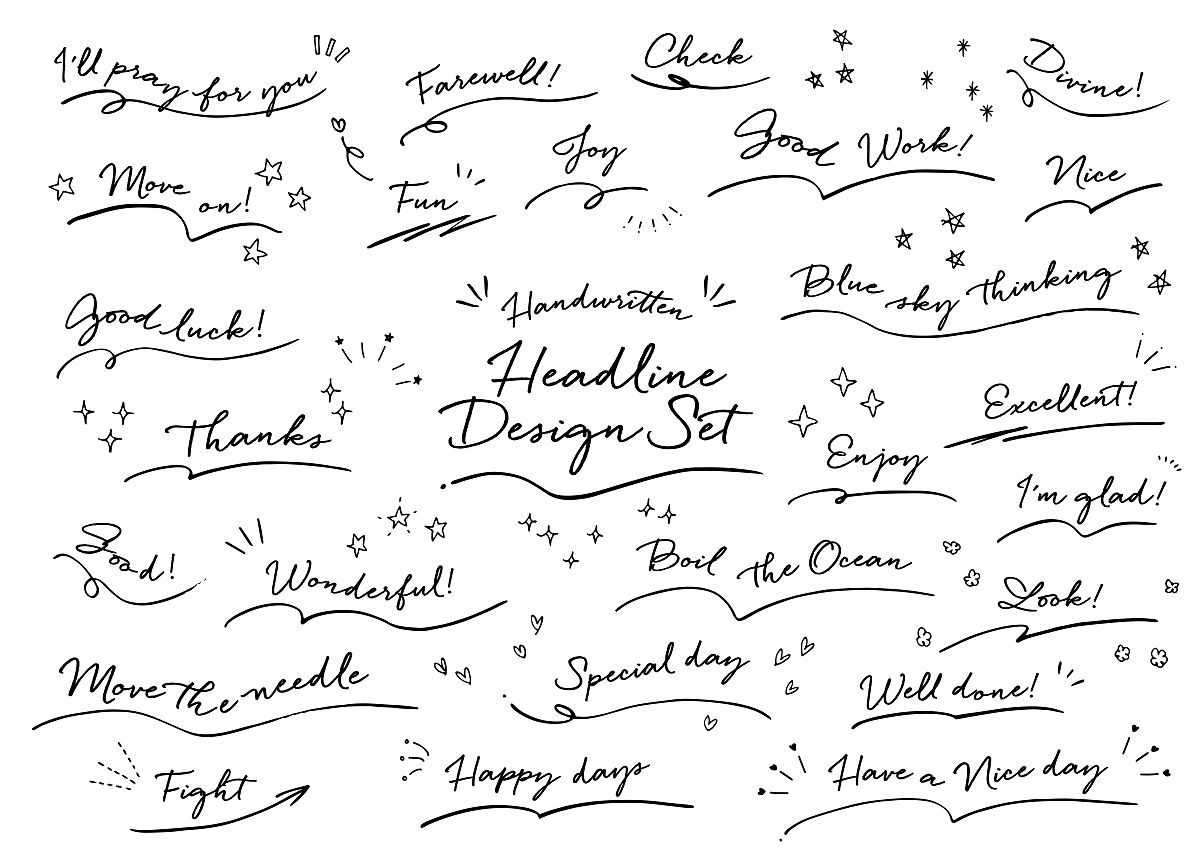 I'll pray for you
Farewell!
Check
Divine!
Move on!
Fun
Joy
Good Work!
Nice
Good luck!
Handwritten
Headline
Design Set
Blue sky thinking
Thanks
Enjoy
Excellent!
I'm glad!
Good!
Wonderful!
Boil the Ocean
Look!
Move the needle
Special day
Well done!
Fight
Happy days
Have a Nice day